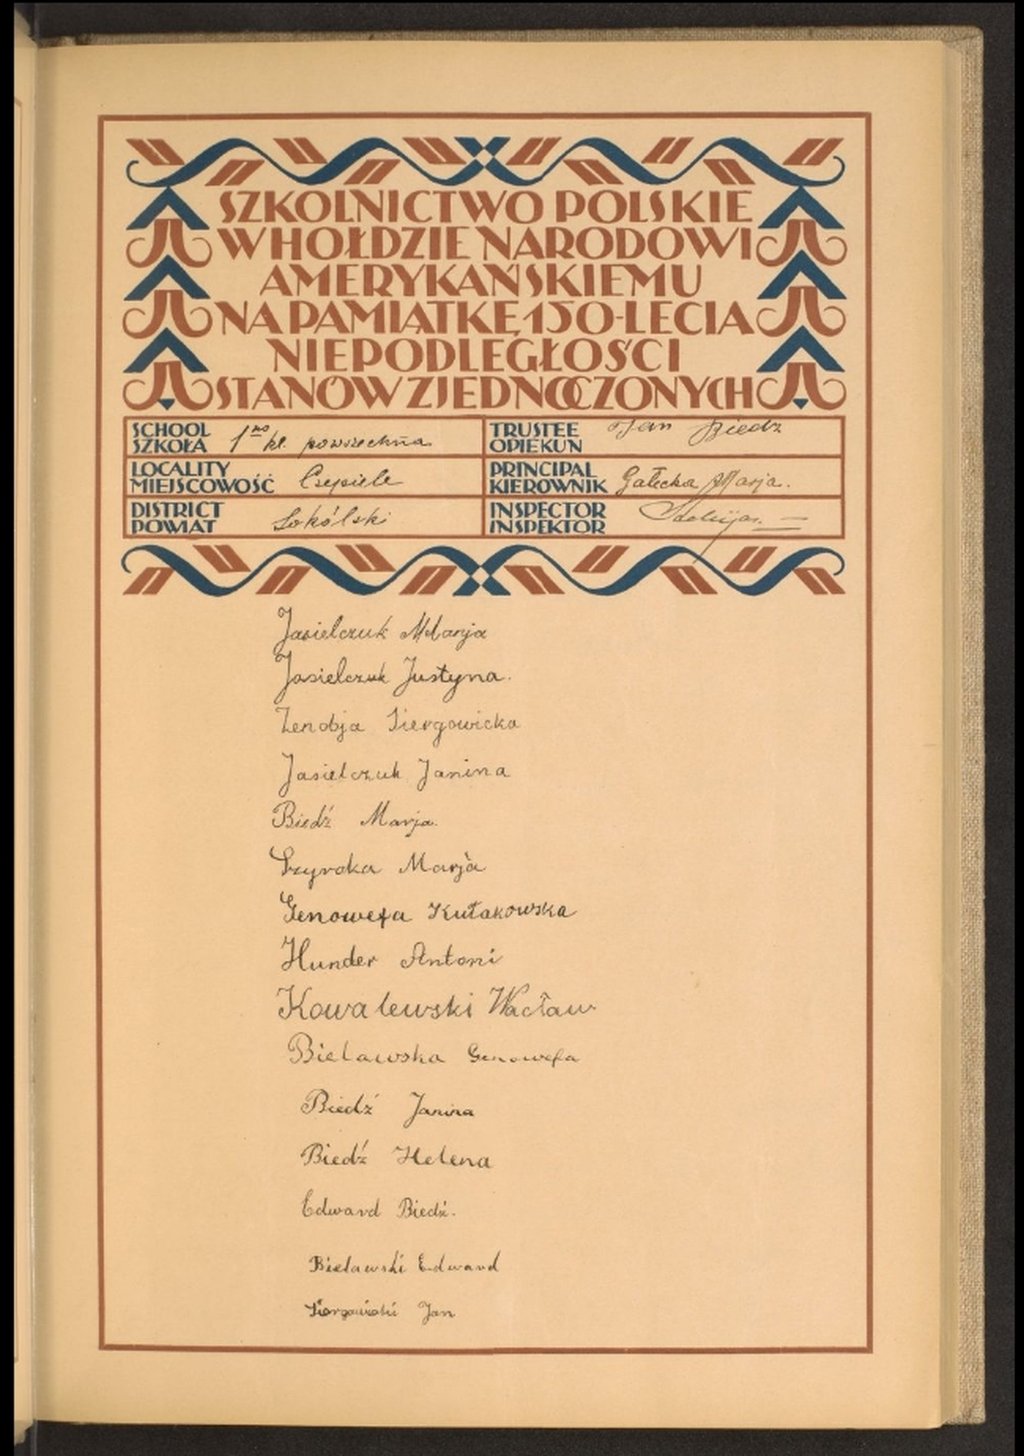 SZKOLNICTWO POLSKIE
W HOŁDZIE NARODOWI
AMERYKAŃSKIEMU
NA PAMIĄTKĘ 150-LECIA
NIEPODLEGŁOŚCI
STANÓW ZJEDNOCZONYCH
SCHOOL
SZKOŁA 1no kl. powszechna
LOCALITY
MIEJSCOWOŚĆ
DISTRICT
POWIAT Sokólski
TRUSTEE
OPIEKUN Jan Biedź
PRINCIPAL
KIEROWNIK Gałecka Marja.
INSPECTOR
INSPEKTOR
Jasielczuk Marja
Jasielczuk Justyna.
Zenobja Siergowicka
Jasielczuk Janina
Biedź Marja.
Szyroka Marja
Genowefa Kułakowska
Hunder Antoni
Kowalewski Wacław
Bielawska Genowefa
Biedź Janina
Biedź Helena
Edward Biedź.
Bielawski Edward
Jan